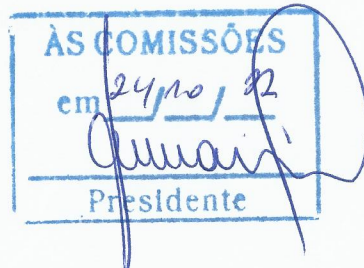 ÀS COMISSÕES
em 24/10/22
Presidente